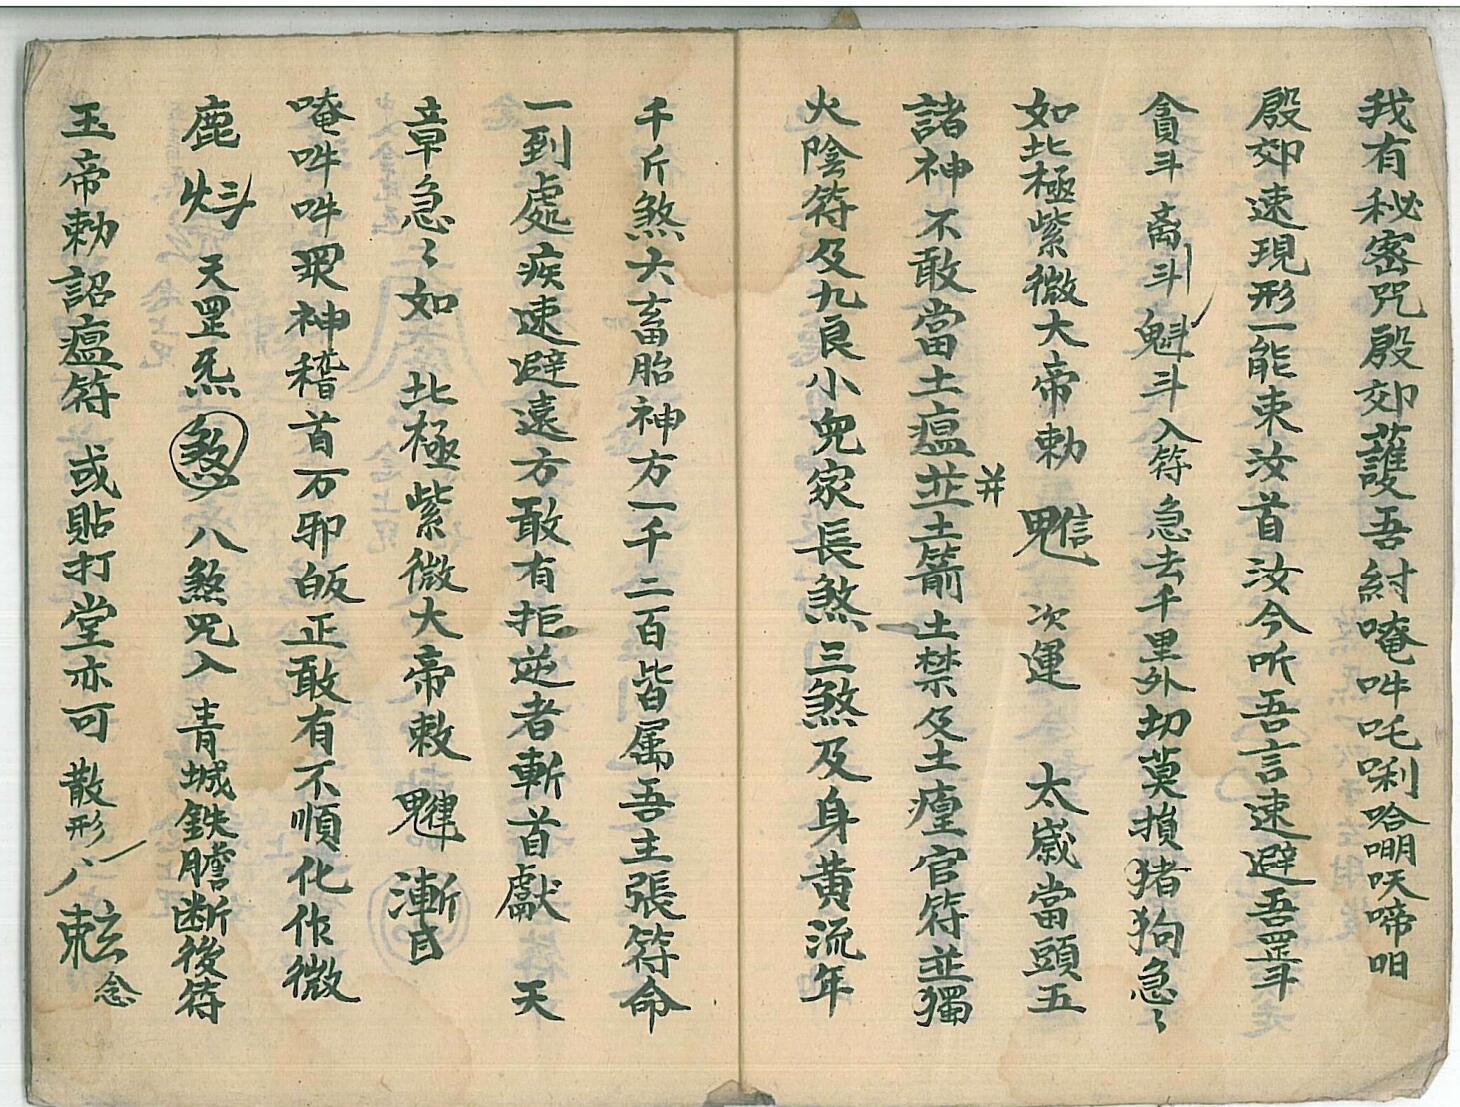 我有秘密咒殷郊護吾紂唵吽吒唎哈嘲呹啼呾
殷郊速現形一能束汝首汝今听吾言速避吾罡斗
貪斗 离斗 魁斗入符急去千里外切莫損猪狗急〻
如北極紫微大帝勅 次運 太歲當頭五
諸神不敢當土瘟並土箭土禁及土瘽官符並獨
并
火陰符及九良小兒家長煞三煞及身黃流年
千斤煞六畜胎神方一千二百皆属吾主張符命
一到處疾速避遠方敢有拒逆者斬首獻 天
章急〻如 北極紫微大帝敕
唵吽吽眾神稽首万邪皈正敢有不順化作微
鹿 天罡炁 煞 八煞咒入 青城鉄膽断後符
玉帝勅詔瘟符 或貼打堂亦可 散形 念